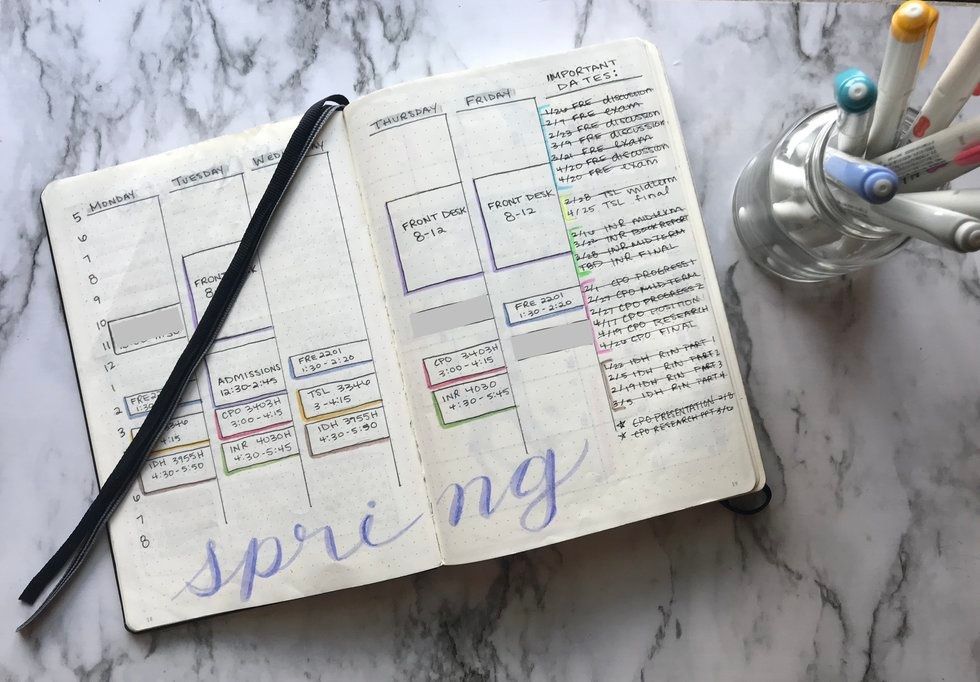 MONDAY
TUESDAY
THURSDAY
FRIDAY
IMPORTANT
DATES:
5
6
7
8
9
10
11
12
1
2
3
6
7
8
IDH 3955H
4:30-5:50
FRONT
ADMISSIONS
12:30-2:45
CPO 3403H
3:00-4:15
INR 4030H
4:30-5:45
FRE 2201
1:30-2:20
TSL 3346
3-4:15
IDH 3955H
4:30-5:50
FRONT DESK
8-12
CPO 3403H
3:00-4:15
INR 4030
4:30-5:45
FRONT DESK
8-12
FRE 2201
1:30-2:20
1/26 FRE discussion
2/7 FRE exam
2/23 FRE discussion
3/9 FRE discussion
3/21 FRE exam
4/20 FRE discussion
4/20 FRE exam
2/28 TSL midterm
4/25 TSL final
2/16 INR MIDTERM
3/22 INR BOOK REPORT
2/28 INR MIDTERM
TBD INR FINAL
2/1 CPO PROGRESS 1
CPO MIDTERM
2/27 CPO PROGRESS 2
4/17 CPO POSITION
4/19 CPO RESEARCH
4/26 CPO FINAL
1/22 IDH RIN PART 1
2/5 IDH RIN PART 2
2/19 IDH RIN PART 3
3/5 IDH RIN PART 4
★ CPO PRESENTATION 2/8
★ CPO RESEARCH PPT 3/6
spring